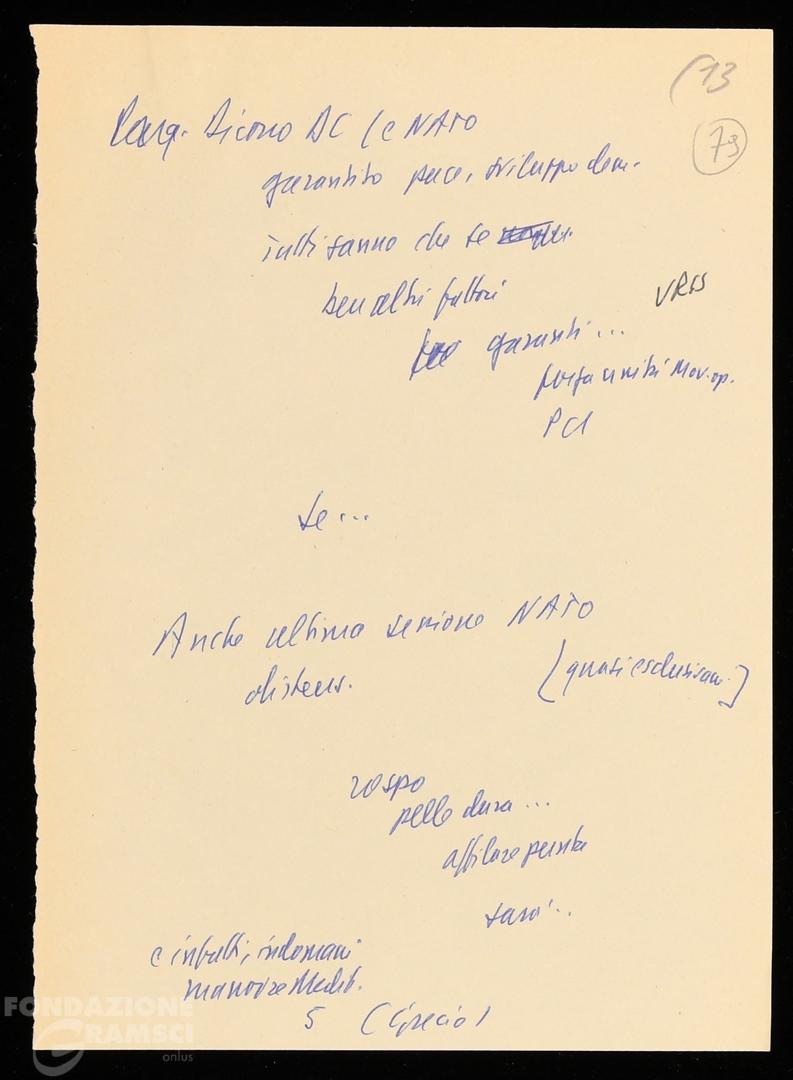 (13
73
Dicono DC (e NATO
garantito pace, sviluppo dem.
tutti sanno che se
ben altri fattori
URSS
garanti...
forza unità Mov. op.
PCI
se...
Anche ultima sessione NATO
distens.
[quasi esclusivam.]
rospo
pelle dura...
affilare punta
sarà...
e infatti, indomani
manovre Medit.
5 (Grecia)
FONDAZIONE
GRAMSCI
onlus